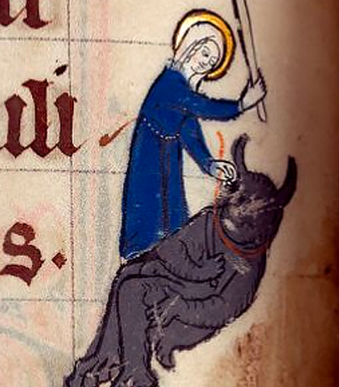 uli
s.